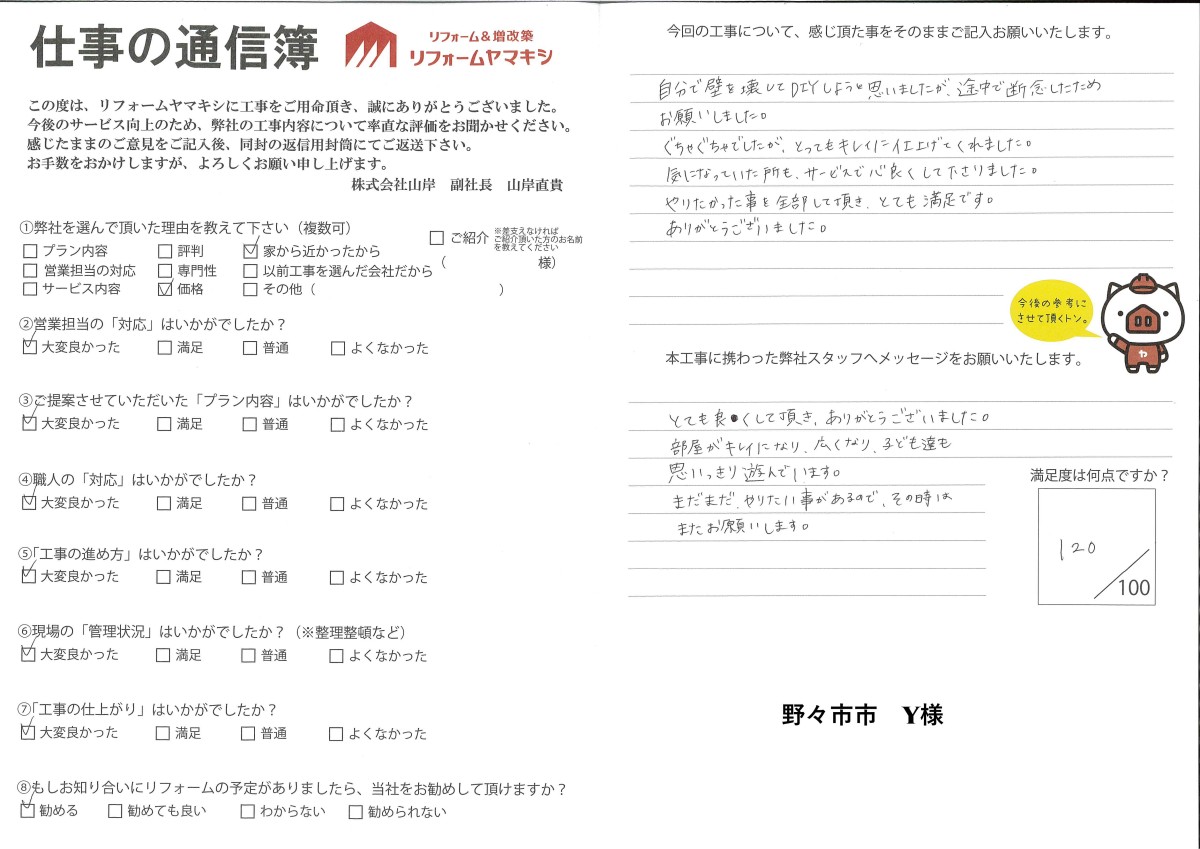 仕事の通信簿
リフォーム&増改築
リフォームヤマキシ
この度は、リフォームヤマキシに工事をご用命頂き、誠にありがとうございました。
今後のサービス向上のため、弊社の工事内容について率直な評価をお聞かせください。
感じたままのご意見をご記入後、同封の返信用封筒にてご返送下さい。
お手数をおかけしますが、よろしくお願い申し上げます。
株式会社山岸　副社長　山岸直貴
①弊社を選んで頂いた理由を教えて下さい（複数可）
□プラン内容 □評判 ☑家から近かったから
□営業担当の対応 □専門性 □以前工事を選んだ会社だから
□サービス内容 ☑価格 □その他（　　　）
□ご紹介 ※差支えなければ
ご紹介頂いた方のお名前
を教えてください
（　　　様）
②営業担当の「対応」はいかがでしたか？
☑大変良かった □満足 □普通 □よくなかった
③ご提案させていただいた「プラン内容」はいかがでしたか？
☑大変良かった □満足 □普通 □よくなかった
④職人の「対応」はいかがでしたか？
☑大変良かった □満足 □普通 □よくなかった
⑤「工事の進め方」はいかがでしたか？
☑大変良かった □満足 □普通 □よくなかった
⑥現場の「管理状況」はいかがでしたか？（※整理整頓など）
☑大変良かった □満足 □普通 □よくなかった
⑦「工事の仕上がり」はいかがでしたか？
☑大変良かった □満足 □普通 □よくなかった
⑧もしお知り合いにリフォームの予定がありましたら、当社をお勧めして頂けますか？
☑勧める □勧めても良い □わからない □勧められない
今回の工事について、感じ頂た事をそのままご記入お願いいたします。
自分で壁を壊してDIYしようと思いましたが、途中で断念したため
お願いしました。
ぐちゃぐちゃでしたが、とってもキレイに仕上げてくれました。
気になっていた所も、サービスで心良くして下さりました。
やりたかった事を全部して頂き、とても満足です。
ありがとうございました。
今後の参考に
させて頂くトン。
ヤ
本工事に携わった弊社スタッフへメッセージをお願いいたします。
とても良くして頂き、ありがとうございました。
部屋がキレイになり、広くなり、子ども達も
思いっきり遊んでいます。
まだまだ、やりたい事があるので、その時は
またお願いします。
満足度は何点ですか？
120
／100
野々市市　Y様